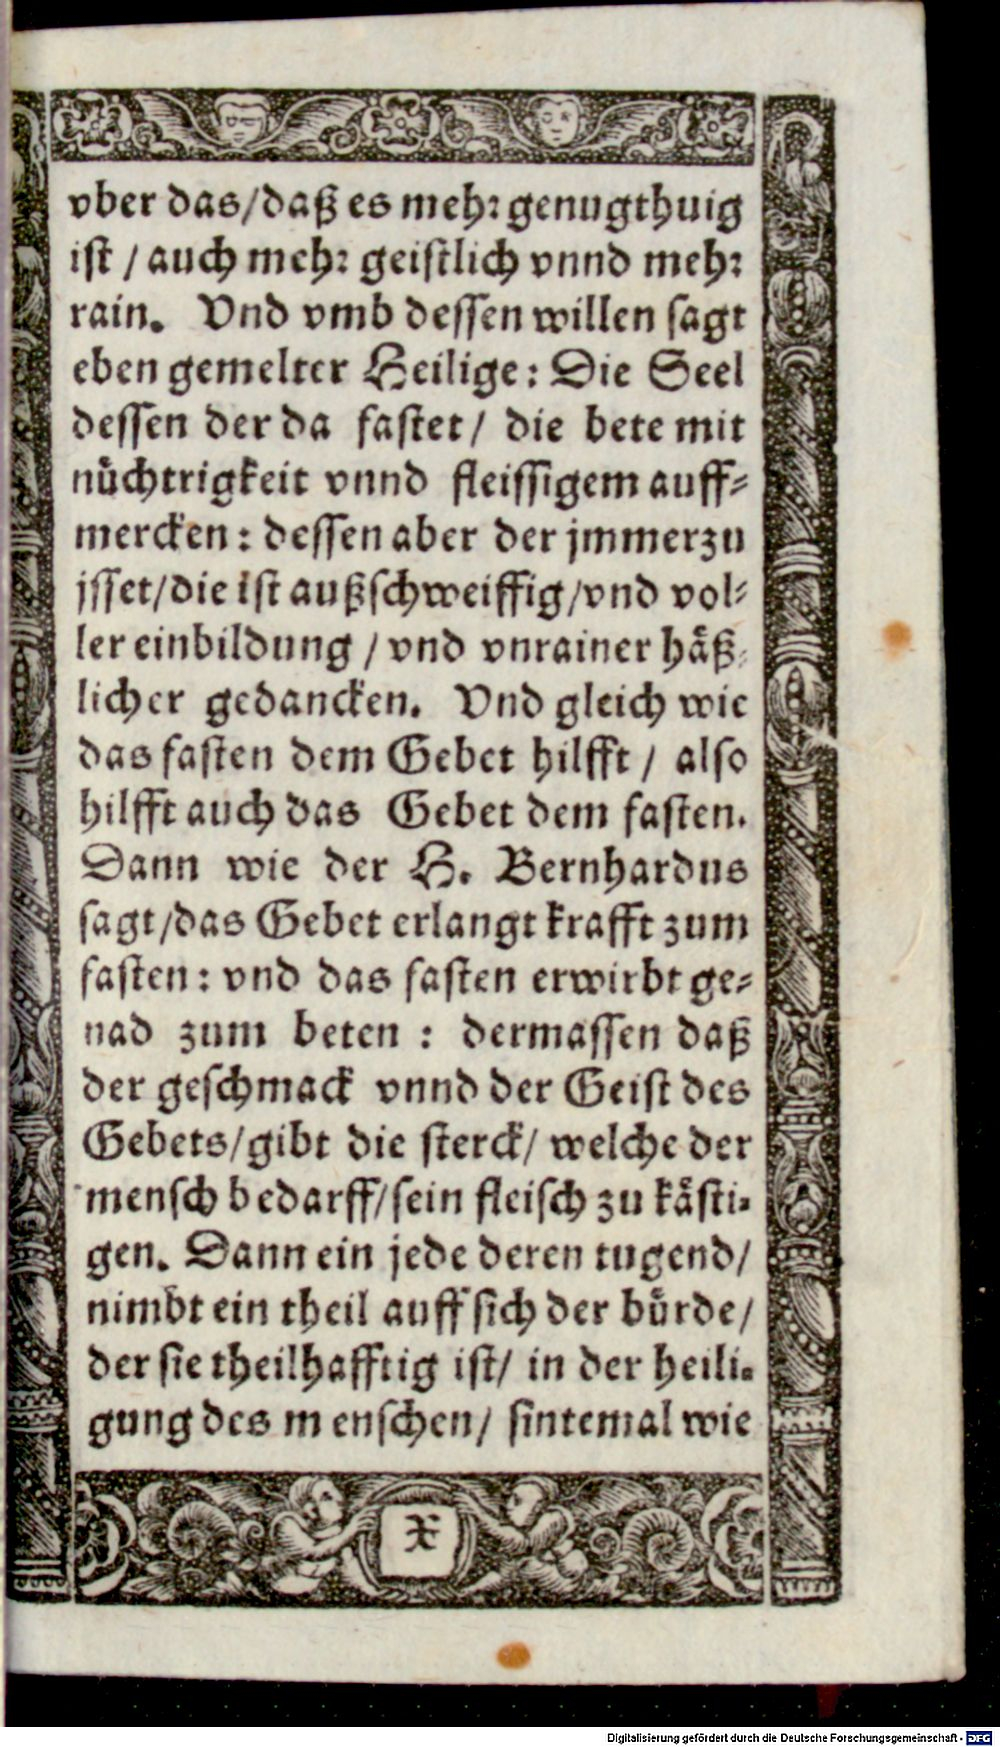 vber das/daß es mehr genugthuig
ist / auch mehr geistlich vnnd mehr
rain. Vnd vmb dessen willen sagt
eben gemelter Heilige: Die Seel
dessen der da fastet/ die bete mit
nüchtrigkeit vnnd fleissigem auff-
mercken: dessen aber der jmmerzu
jsset/die ist außschweiffig/vnd vol-
ler einbildung / vnd vnrainer häß-
licher gedancken. Vnd gleich wie
das fasten dem Gebet hilfft / also
hilfft auch das Gebet dem fasten.
Dann wie der H. Bernhardus
sagt/das Gebet erlangt krafft zum
fasten: vnd das fasten erwirbt ge-
nad zum beten : dermassen daß
der geschmack vnnd der Geist des
Gebets/gibt die sterck/ welche der
mensch bedarff/sein fleisch zu kästi-
gen. Dann ein jede deren tugend/
nimbt ein theil auff sich der bürde/
der sie theilhafftig ist/ in der heili-
gung des menschen/ sintemal wie
X
Digitalisierung gefördert durch die Deutsche Forschungsgemeinschaft - DFG